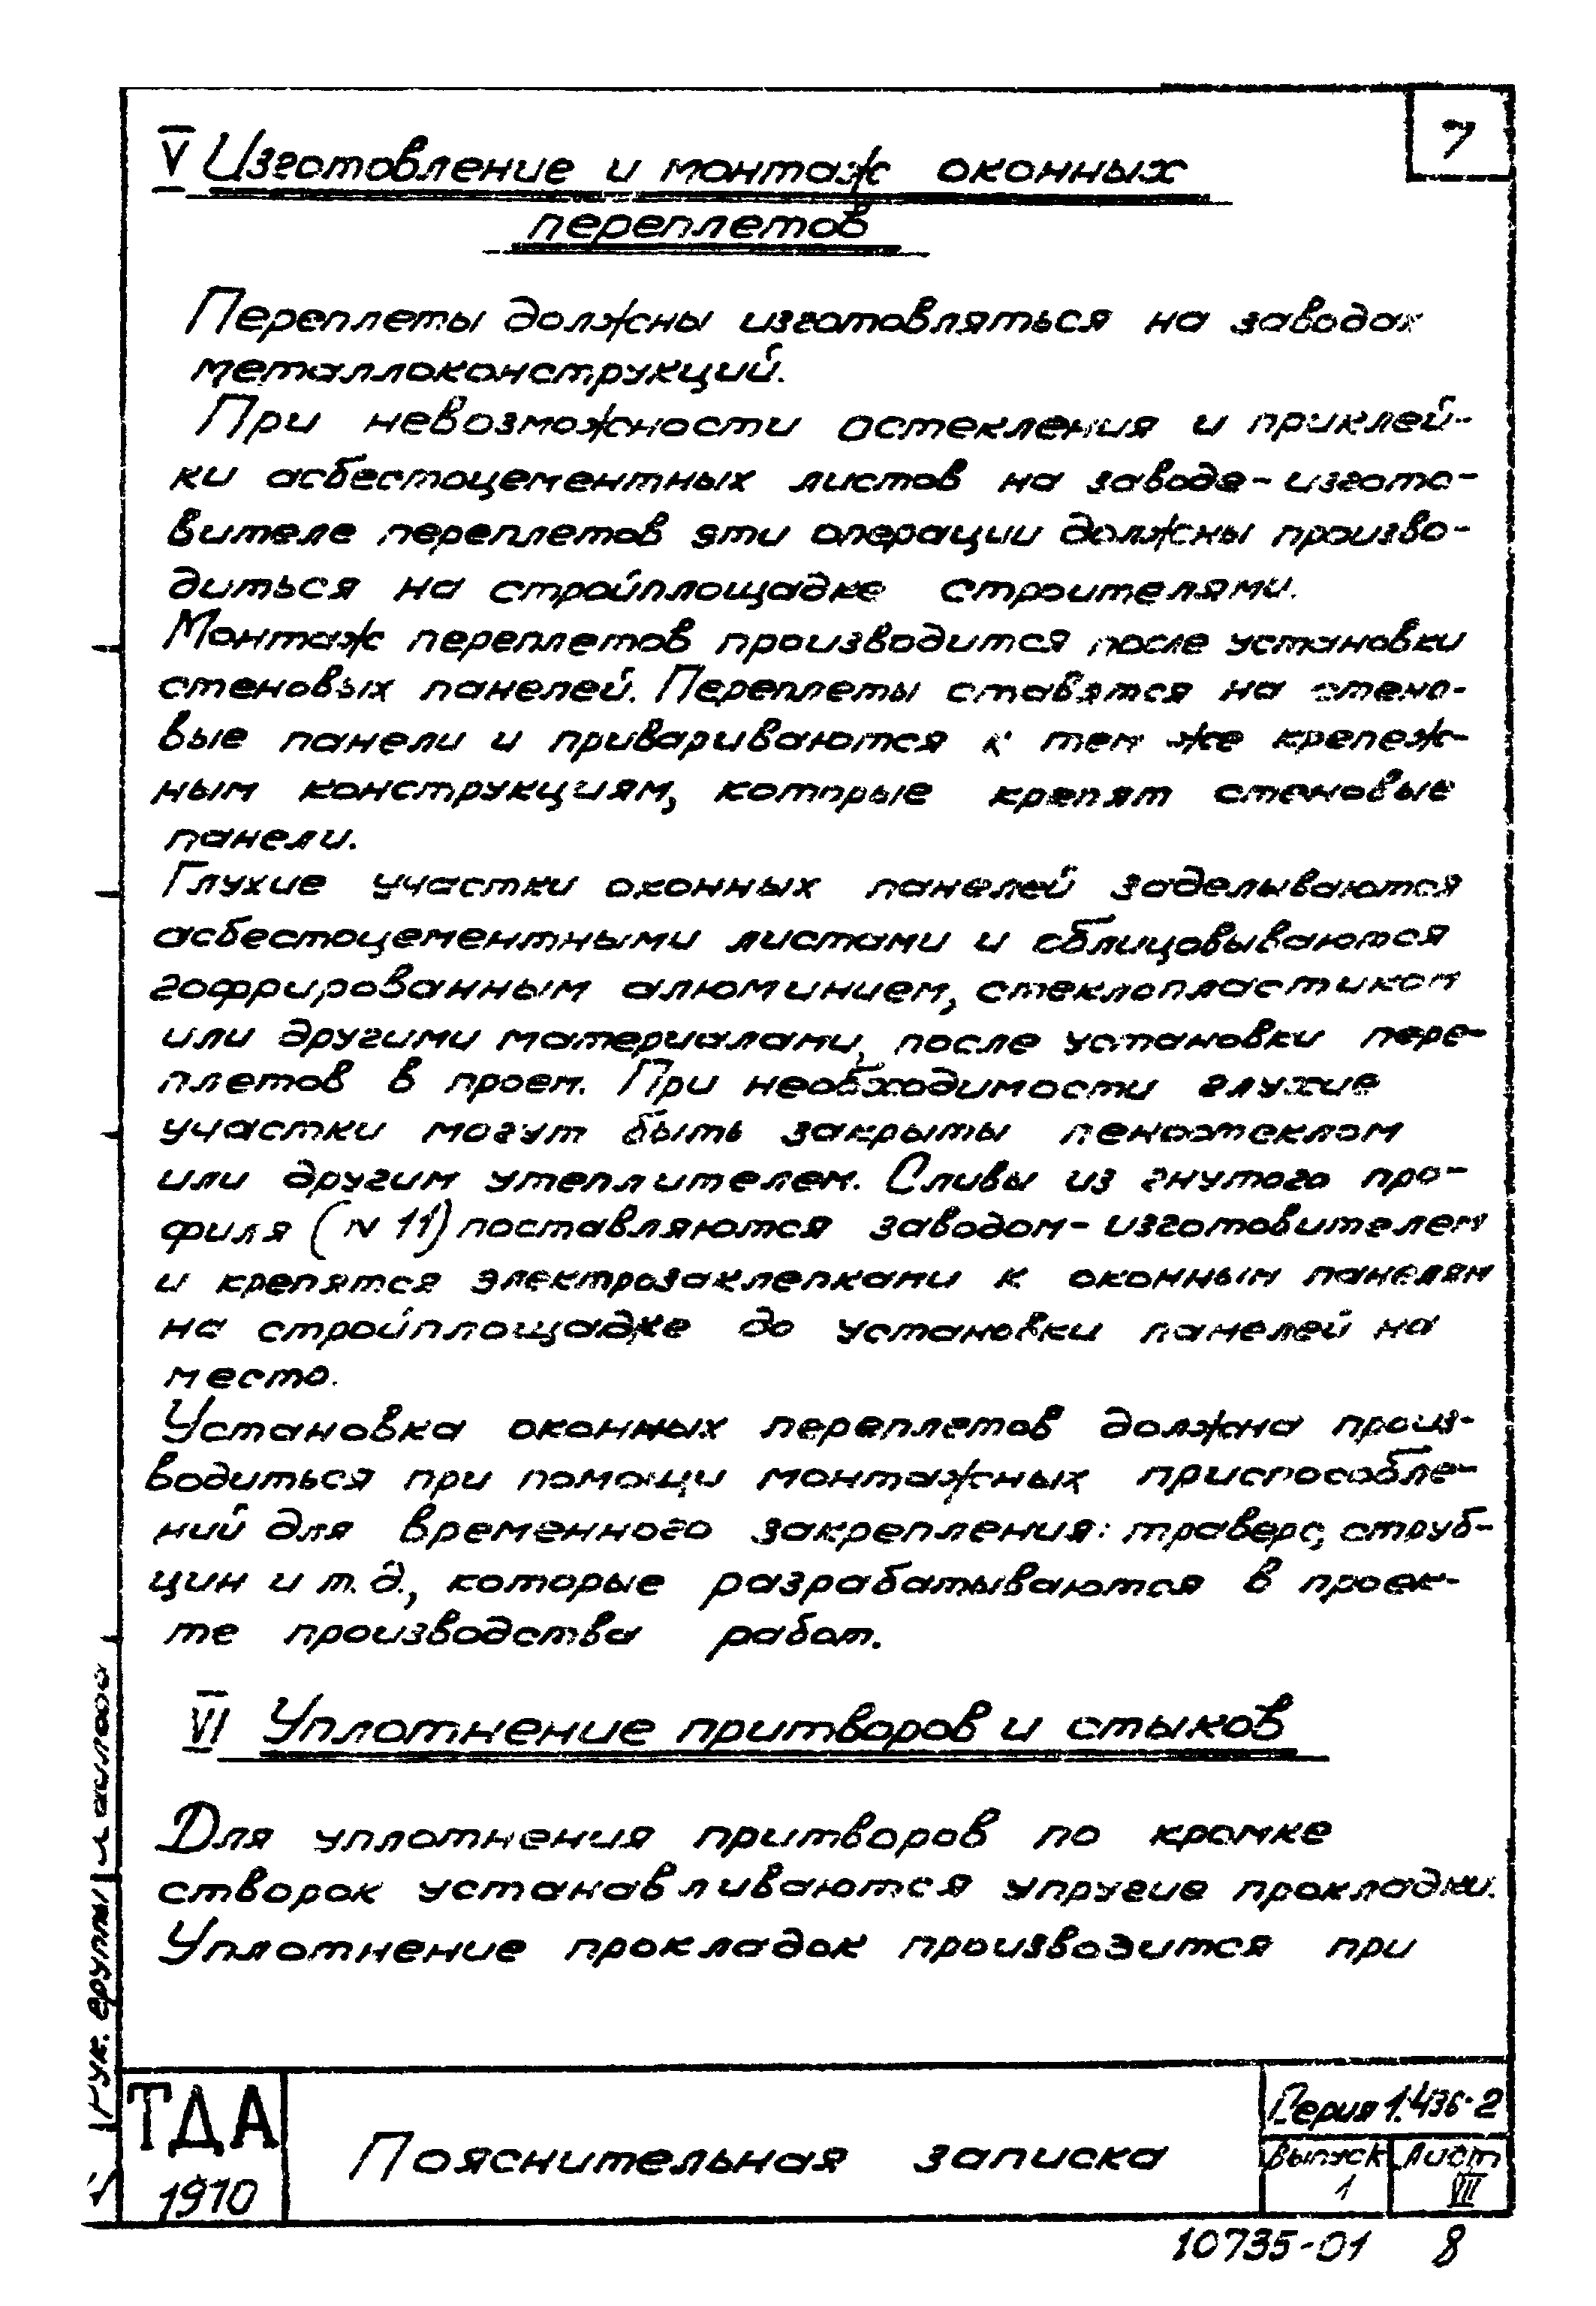 7
V Изготовление и монтаж оконных
переплетов
Переплеты должны изготовляться на заводах
металлоконструкций.
При невозможности остекления и приклей-
ки асбестоцементных листов на заводе-изгото-
вителе переплетов эти операции должны произво-
диться на стройплощадке строителями.
Монтаж переплетов производится после установки
стеновых панелей. Переплеты ставятся на стено-
вые панели и привариваются к тем же крепеж-
ным конструкциям, которые крепят стеновые
панели.
Глухие участки оконных панелей заделываются
асбестоцементными листами и облицовываются
гофрированным алюминием, стеклопластиком
или другими материалами, после установки пере-
плетов в проем. При необходимости глухие
участки могут быть закрыты пеностеклом
или другим утеплителем. Сливы из гнутого про-
филя (N 11) поставляются заводом-изготовителем
и крепятся электрозаклепками к оконным панелям
на стройплощадке до установки панелей на
место.
Установка оконных переплетов должна произ-
водиться при помощи монтажных приспособле-
ний для временного закрепления: траверс, струб-
цин и т.д., которые разрабатываются в проек-
те производства работ.
VI Уплотнение притворов и стыков
Для уплотнения притворов по кромке
створок устанавливаются упругие прокладки.
Уплотнение прокладок производится при
Рук. группы
ТДА
1970
Пояснительная записка
Серия 1.436-2
Выпуск
1
Лист
VII
10735-01 8